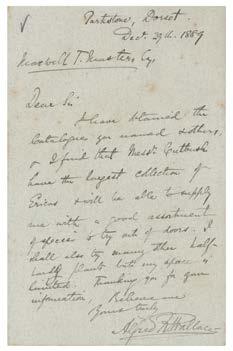 Parkstone, Dorset.
Dec. 29th. 1889
Maxwell T. Masters Esq.
Dear Sir
I have obtained the
Catalogue you named & others,
& I find that Messrs. Cutbush
have the largest collection of
Ericas & will be able to supply
me with a good assortment
of species to try out of doors. I
shall also try many other half-
hardy plants but my space is
limited. Thanking you for your
information, Believe me
Yours truly
Alfred R. Wallace